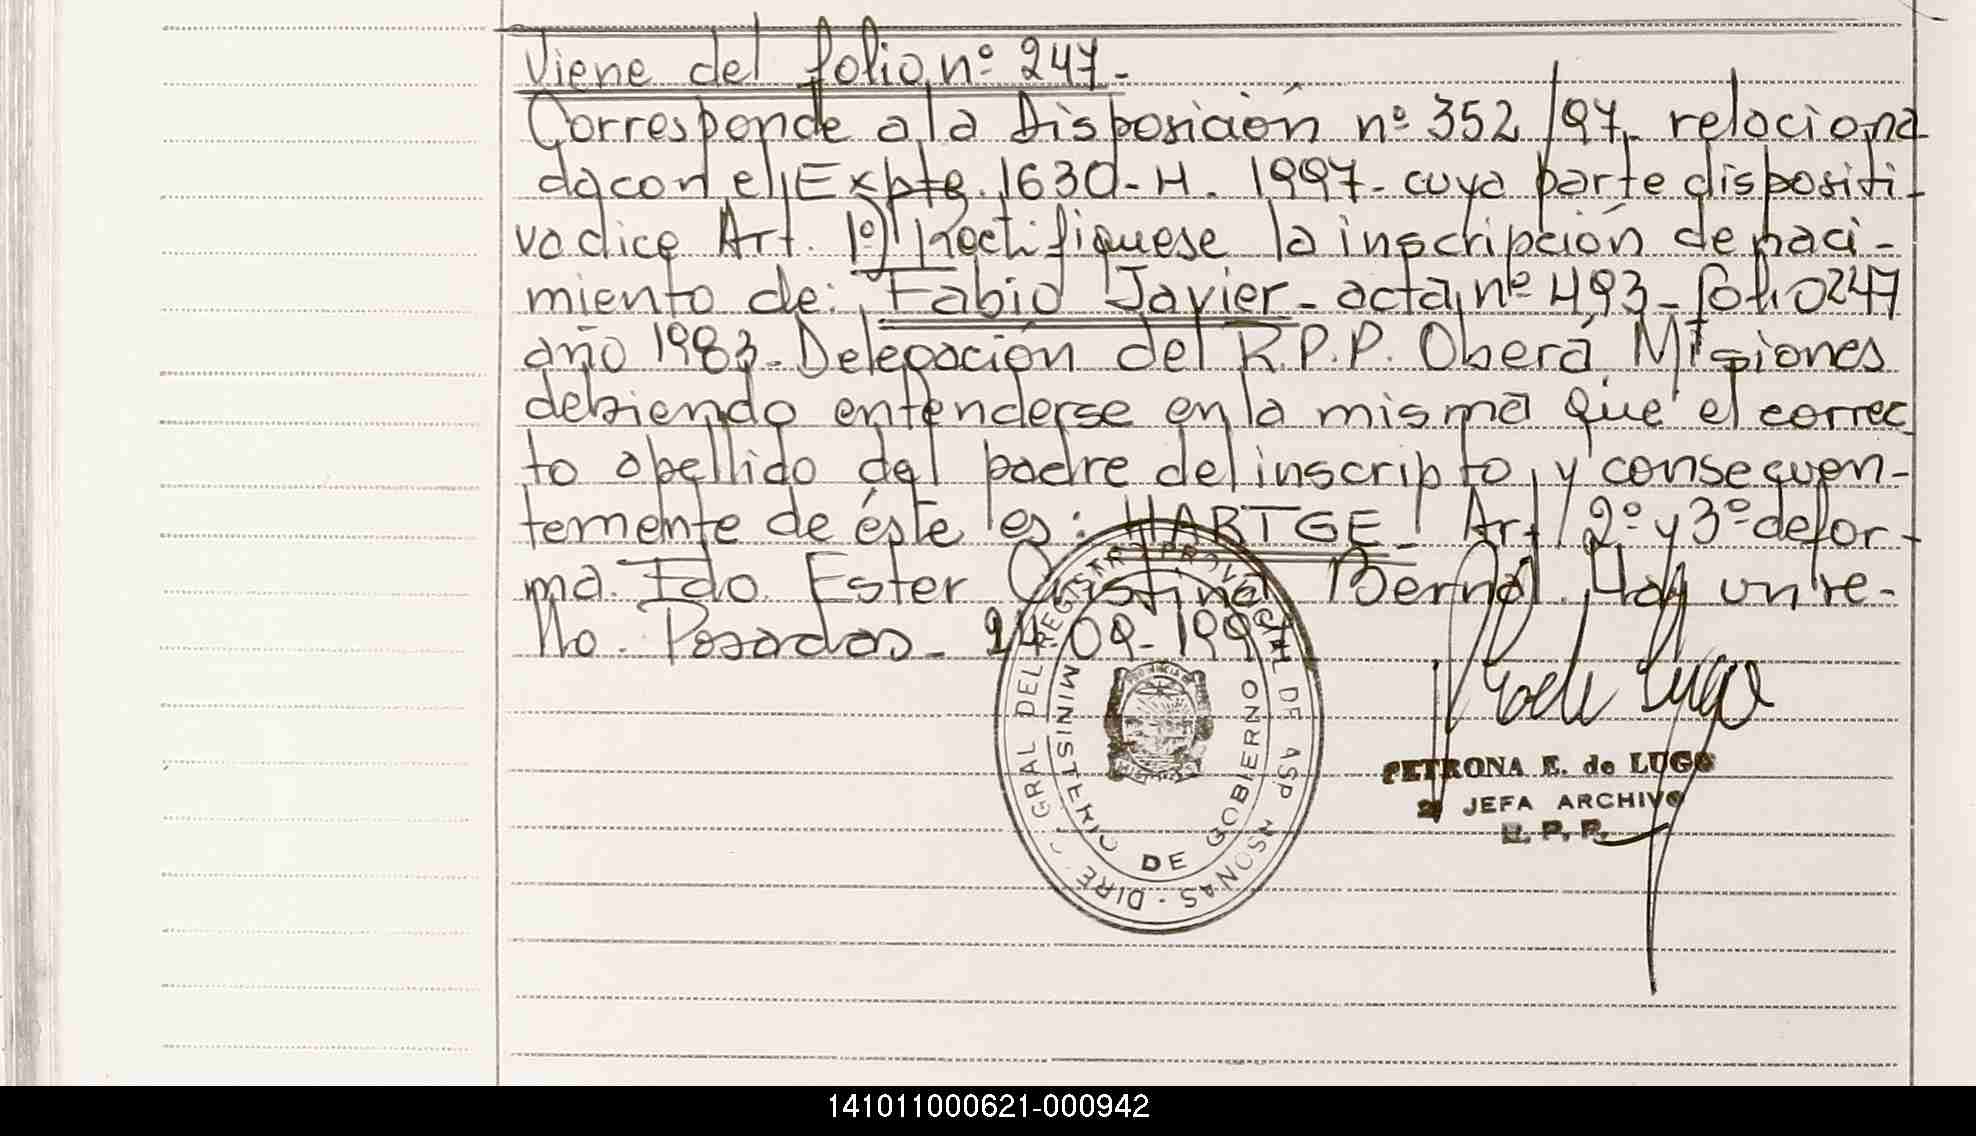 Viene del folio nº 247-
Corresponde a la Disposición nº 352/97, relaciona
da con el Expte. 1630-H. 1997- cuya parte dispositi-
va dice Art. 1º) Rectifíquese la inscripción de naci-
miento de: Fabio Javier - acta nº 493 - folio 247
año 1983 - Delegación del R.P.P. Oberá Misiones
debiendo entenderse en la misma que el correc
to apellido del padre del inscripto, y consecuen-
temente de éste es: HARTGE - Art. 2º y 3º de for-
ma. Fdo. Ester Cristina Bernal. Hay un se-
llo. Posadas - 24-09-1997
DIREC. GRAL DEL REGISTRO PROVINCIAL DE LAS PERSONAS
MINISTERIO DE GOBIERNO
PROVINCIA DE
MISIONES
PETRONA E. de LUGO
JEFA ARCHIVO
R. P. P.
141011000621-000942